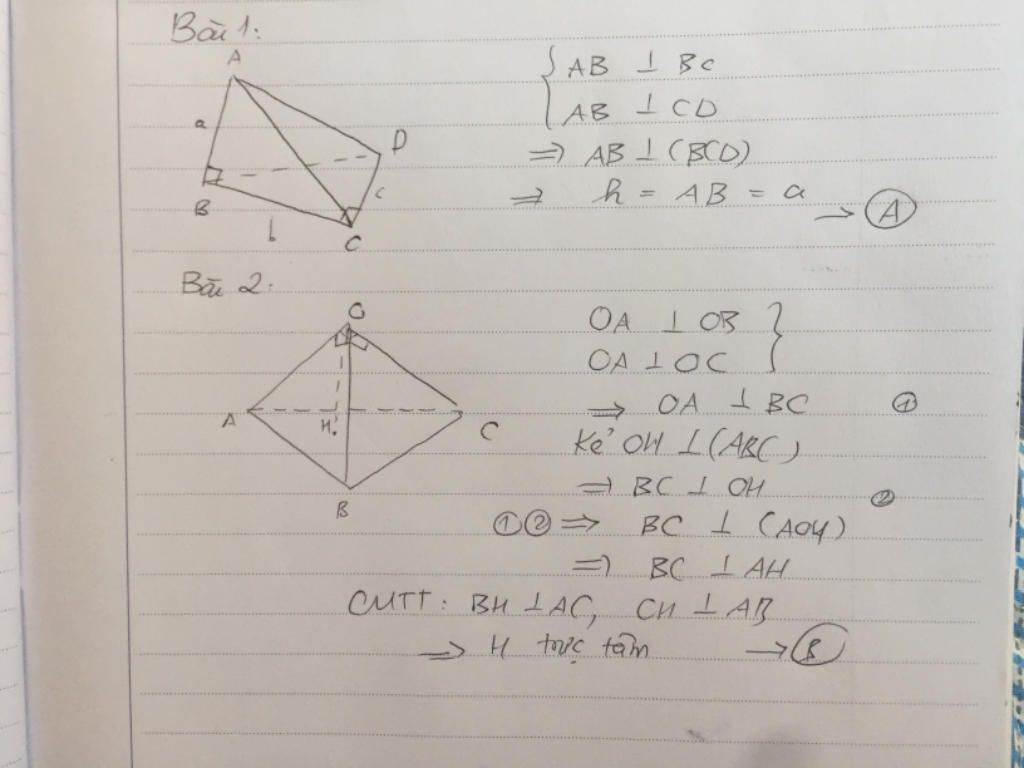 Bài 1:
A
a
D
B
c
b
C
{ AB ⊥ BC
AB ⊥ CD
⇒ AB ⊥ (BCD)
⇒ h = AB = a → A
Bài 2:
O
A
H
C
B
OA ⊥ OB }
OA ⊥ OC
⇒ OA ⊥ BC ①
Kẻ OH ⊥ (ABC)
⇒ BC ⊥ OH ②
①② ⇒ BC ⊥ (AOH)
⇒ BC ⊥ AH
CMTT: BH ⊥ AC, CH ⊥ AB
⇒ H trực tâm → B